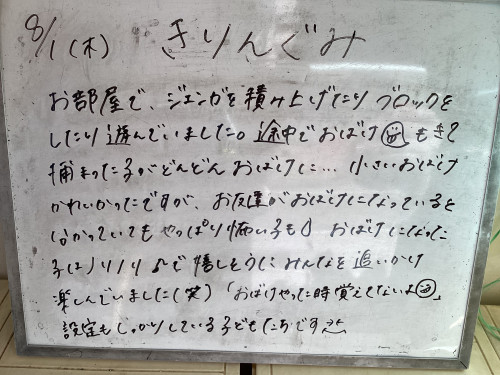 8/1(木) きりんぐみ
お部屋で、ジェンガを積み上げたり ブロックを
したり遊んでいました。途中でおばけ もきて
捕まった子がどんどん おばけに… 小さいおばけ
かわいかったですが、お友達がおばけになっていると
分かっていても やっぱり怖い子も おばけになった
子はノリノリ♪で嬉しそうに みんなを追いかけ
楽しんでいました(笑)「おばけやった時覚えてないよ」
設定もしっかりしている子どもたちです